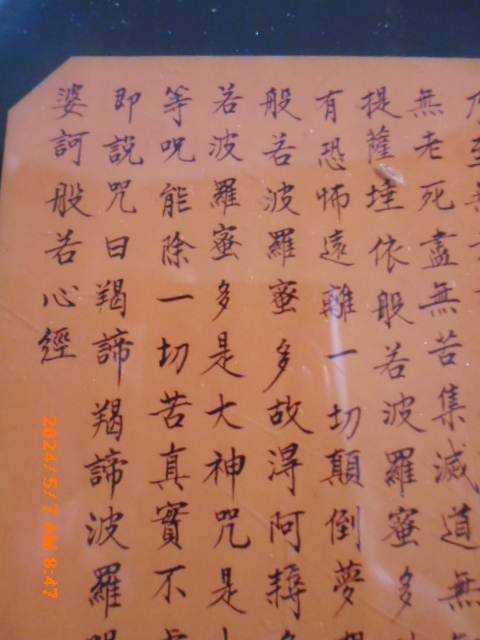 乃至無
無老死盡無苦集滅道無
提薩埵依般若波羅蜜多
有恐怖遠離一切顛倒夢
般若波羅蜜多故得阿耨
若波羅蜜多是大神咒是
等呪能除一切苦真實不
即説咒曰羯諦羯諦波羅
婆訶般若心經
2024/5/7 AM 8:47